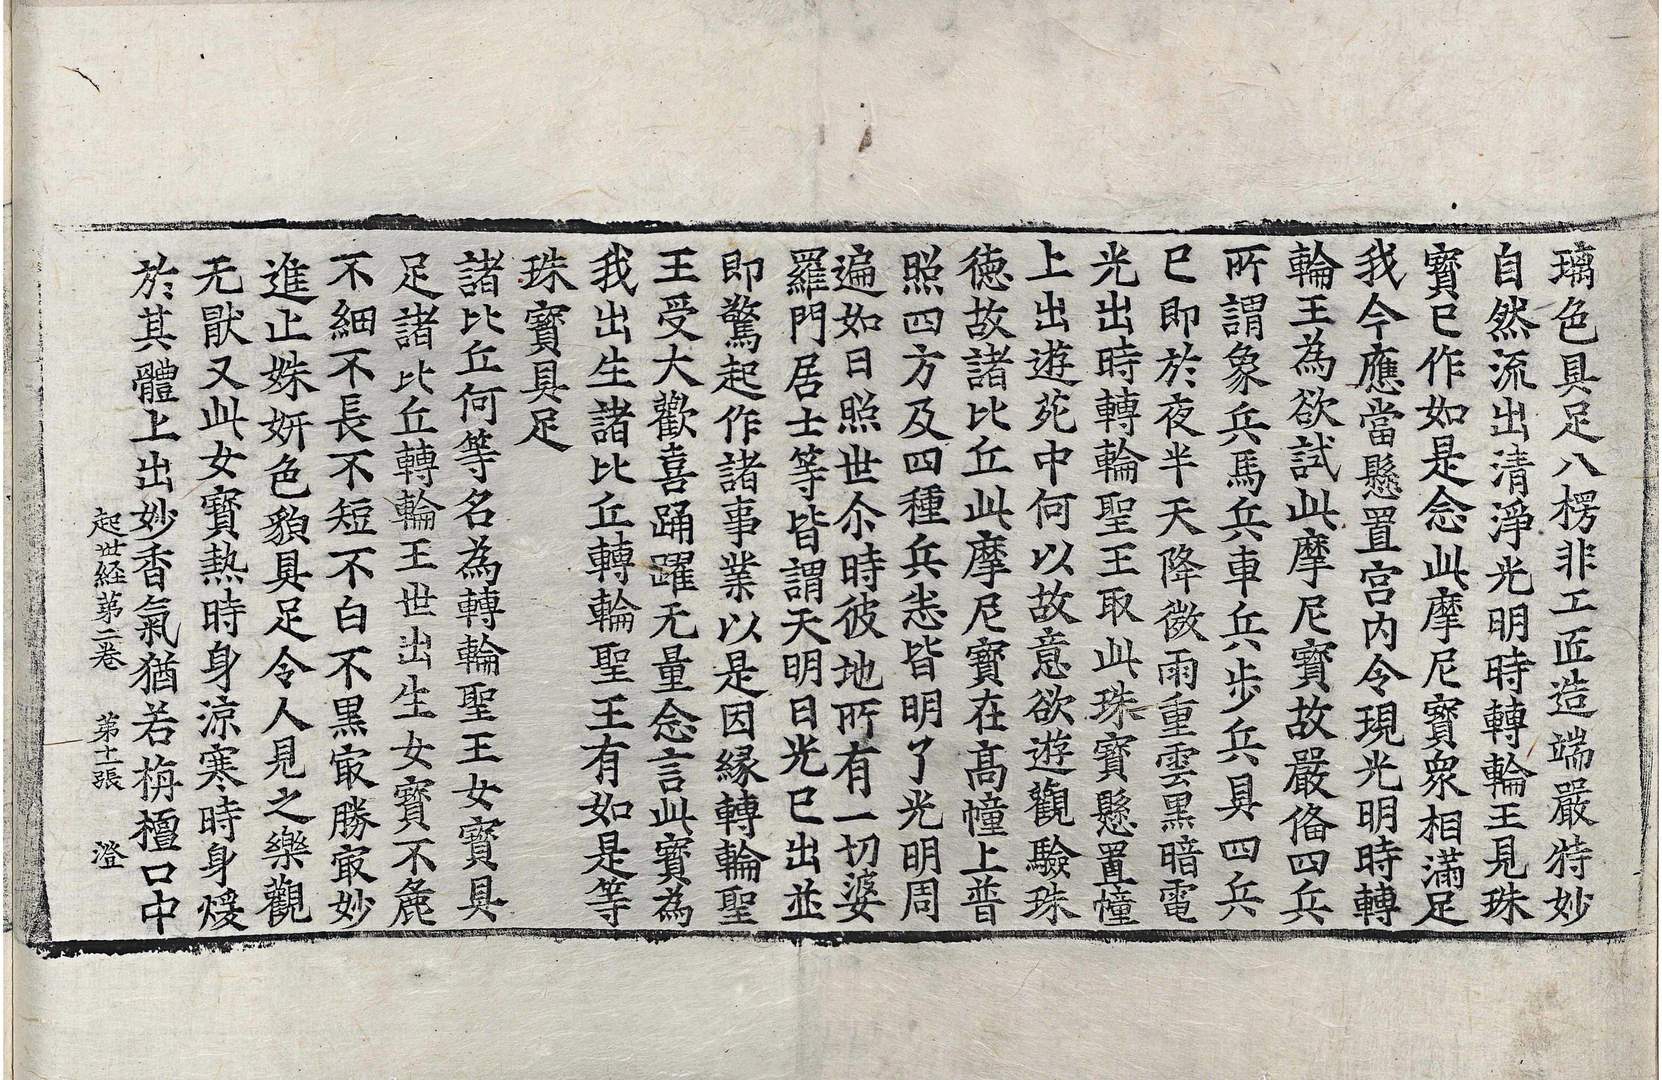 璃色具足八楞非工匠造端嚴特妙
自然流出清淨光明時轉輪王見珠
寶已作如是念此摩尼寶衆相滿足
我今應當懸置宮内令現光明時轉
輪王為欲試此摩尼寶故嚴俻四兵
所謂象兵馬兵車兵步兵具四兵
已即於夜半天降微雨重雲黑暗電
光出時轉輪聖王取此珠寶懸置幢
上出遊苑中何以故意欲遊觀驗珠
徳故諸比丘此摩尼寶在髙幢上普
照四方及四種兵悉皆明了光明周
遍如日照世尒時彼地所有一切婆
羅門居士等皆謂天明日光已出並
即驚起作諸事業以是因縁轉輪聖
王受大歡喜踊躍无量念言此寶為
我出生諸比丘轉輪聖王有如是等
珠寶具足
諸比丘何等名為轉輪聖王女寶具
足諸比丘轉輪王世出生女寶不麁
不細不長不短不白不黒㝡勝㝡妙
進止姝妍色貌具足令人見之樂觀
无厭又此女寶熱時身涼寒時身煖
於其體上出妙香氣猶若栴檀口中
起世経第二卷 第十一張 澄